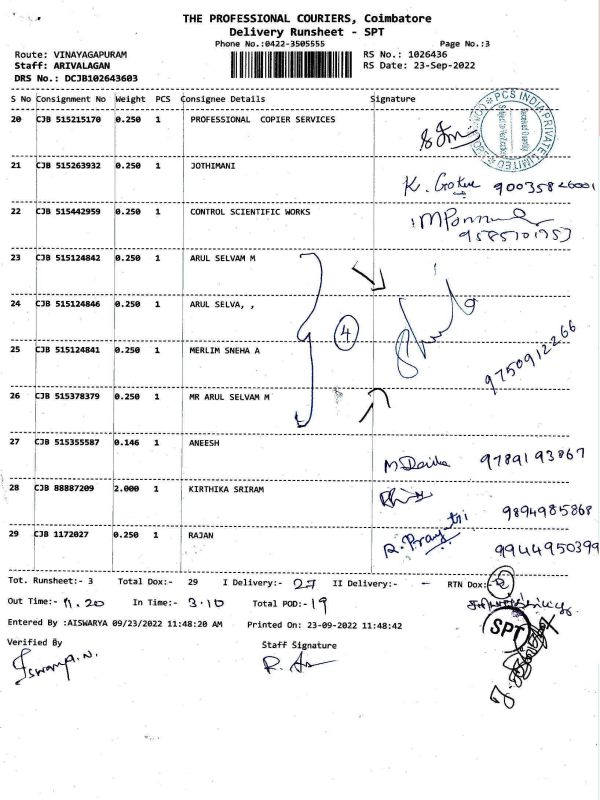 THE PROFESSIONAL COURIERS, Coimbatore
Delivery Runsheet - SPT
Phone No.:0422-3505555 Page No.:3
Route: VINAYAGAPURAM RS No.: 1026436
Staff: ARIVALAGAN RS Date: 23-Sep-2022
DRS No.: DCJB102643603
S No Consignment No Weight PCS Consignee Details Signature
20 CJB 515215170 0.250 1 PROFESSIONAL COPIER SERVICES
PCS INDIA PRIVATE LIMITED
21 CJB 515263932 0.250 1 JOTHIMANI
22 CJB 515442959 0.250 1 CONTROL SCIENTIFIC WORKS
23 CJB 515124842 0.250 1 ARUL SELVAM M
24 CJB 515124846 0.250 1 ARUL SELVA, ,
4
25 CJB 515124841 0.250 1 MERLIM SNEHA A
9750912266
26 CJB 515378379 0.250 1 MR ARUL SELVAM M
27 CJB 515355587 0.146 1 ANEESH
9789193867
28 CJB 88887209 2.000 1 KIRTHIKA SRIRAM
9894985868
29 CJB 1172027 0.250 1 RAJAN
9944950399
Tot. Runsheet:- 3 Total Dox:- 29 I Delivery:- 27 II Delivery:- - RTN Dox:- 2
Out Time:- 11.20 In Time:- 3.10 Total POD:- 19
SPT
Entered By :AISWARYA 09/23/2022 11:48:20 AM Printed On: 23-09-2022 11:48:42
Verified By Staff Signature